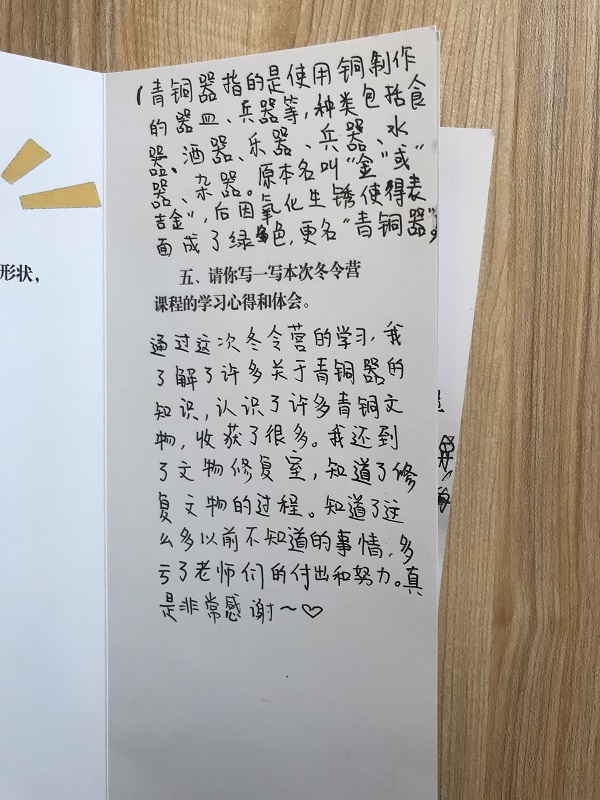 形状，
（青铜器指的是使用铜制作
的器皿、兵器等，种类包括食
器、酒器、乐器、兵器、水
器、杂器。原本名叫“金”或“
吉金”，后因氧化生锈使得表
面成了绿色，更名“青铜器”。
五、请你写一写本次冬令营
课程的学习心得和体会。
通过这次冬令营的学习，我
了解了许多关于青铜器的
知识，认识了许多青铜文
物，收获了很多。我还到
了文物修复室，知道了修
复文物的过程。知道了这
么多以前不知道的事情，多
亏了老师们的付出和努力。真
是非常感谢～♡